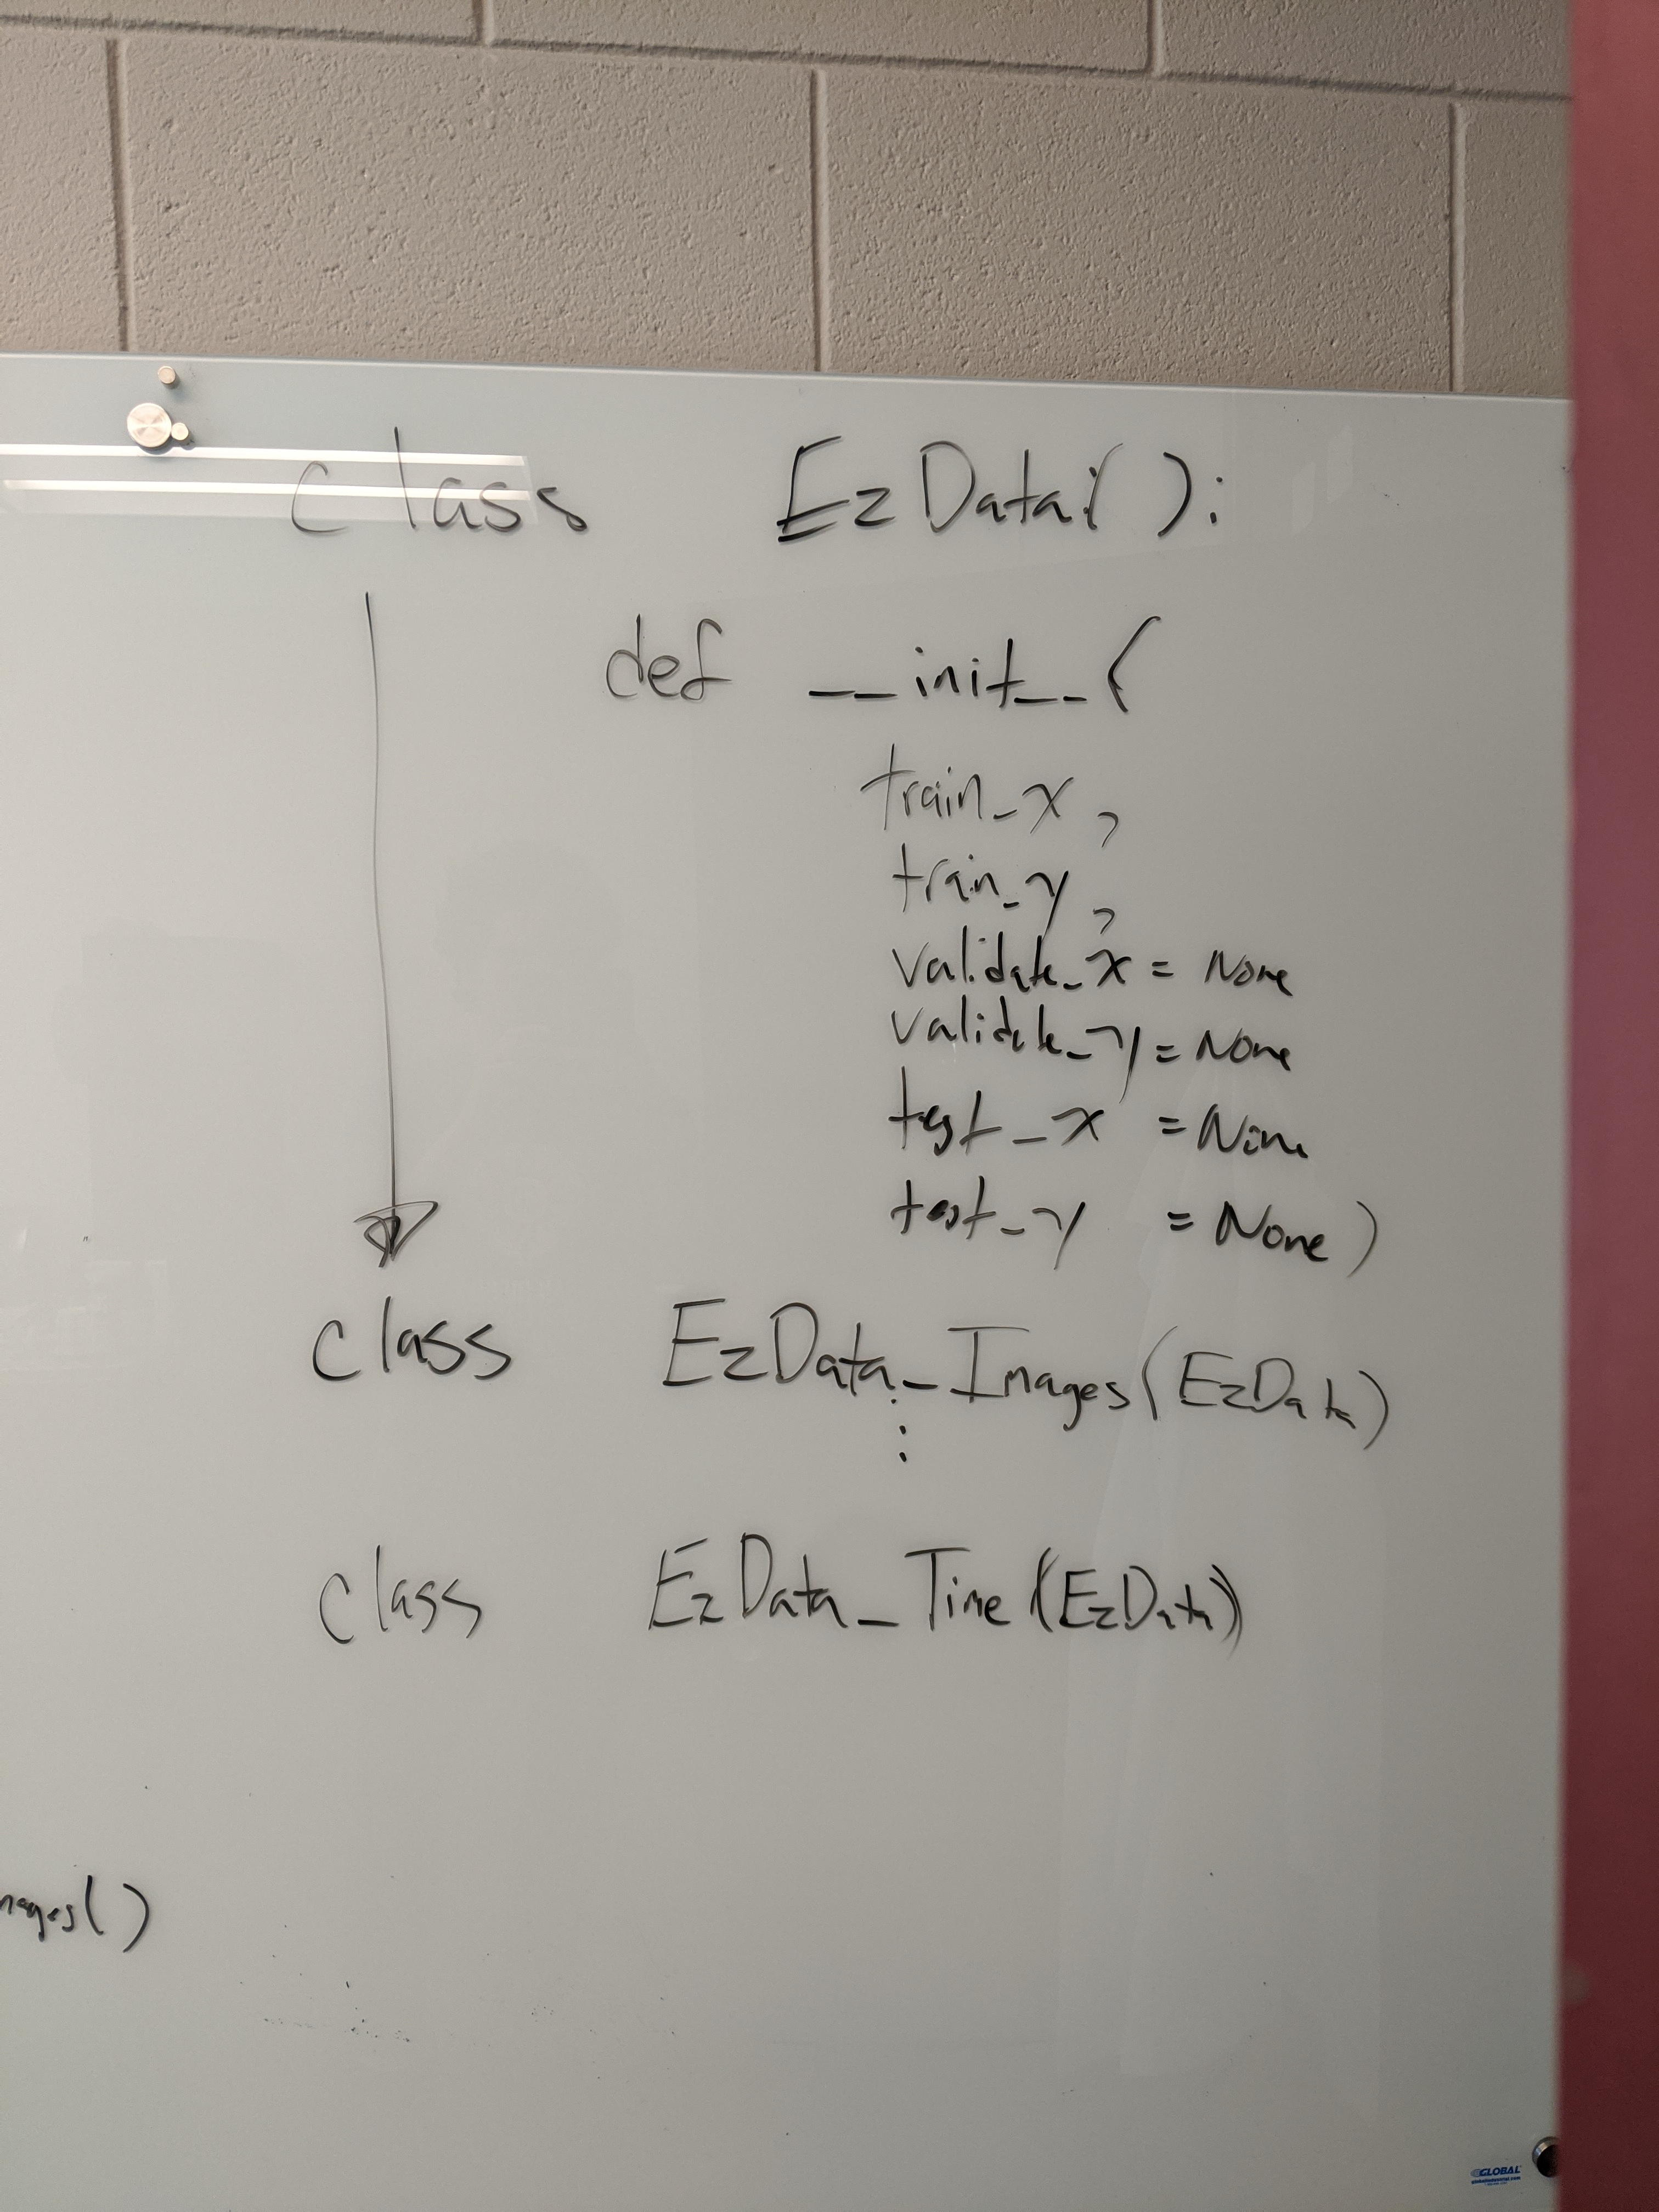 class EzData():
def __init__(
train_x,
train_y,
validate_x = None
validate_y = None
test_x = None
test_y = None)
class EzData_Images(EzData)
class EzData_Time(EzData)
mages()
GLOBAL